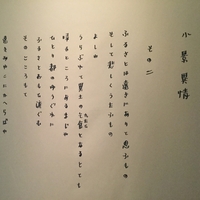 小景異情
その二
ふるさとは遠きにありて思ふもの
そして悲しくうたふもの
よしや
うらぶれて異土の乞食となるとても
帰るところにあるまじや
ひとり都のゆふぐれに
ふるさとおもひ涙ぐむ
そのこころもて
遠きみやこにかへらばや